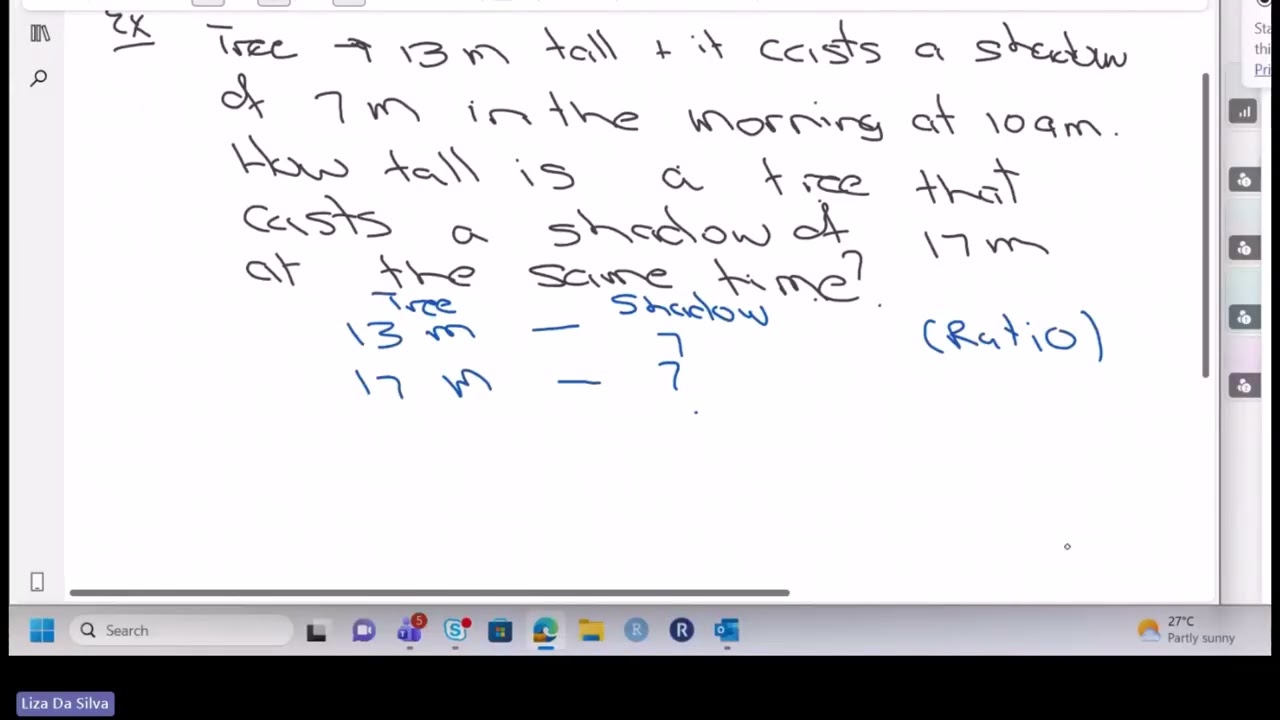 Ex Tree → 13 m tall + it casts a shadow
of 7 m in the morning at 10 am.
How tall is a tree that
casts a shadow of 17 m
at the same time?
Tree Shadow
13 m — 7 (Ratio)
17 m — ?
Search
5
27°C
Partly sunny
Liza Da Silva